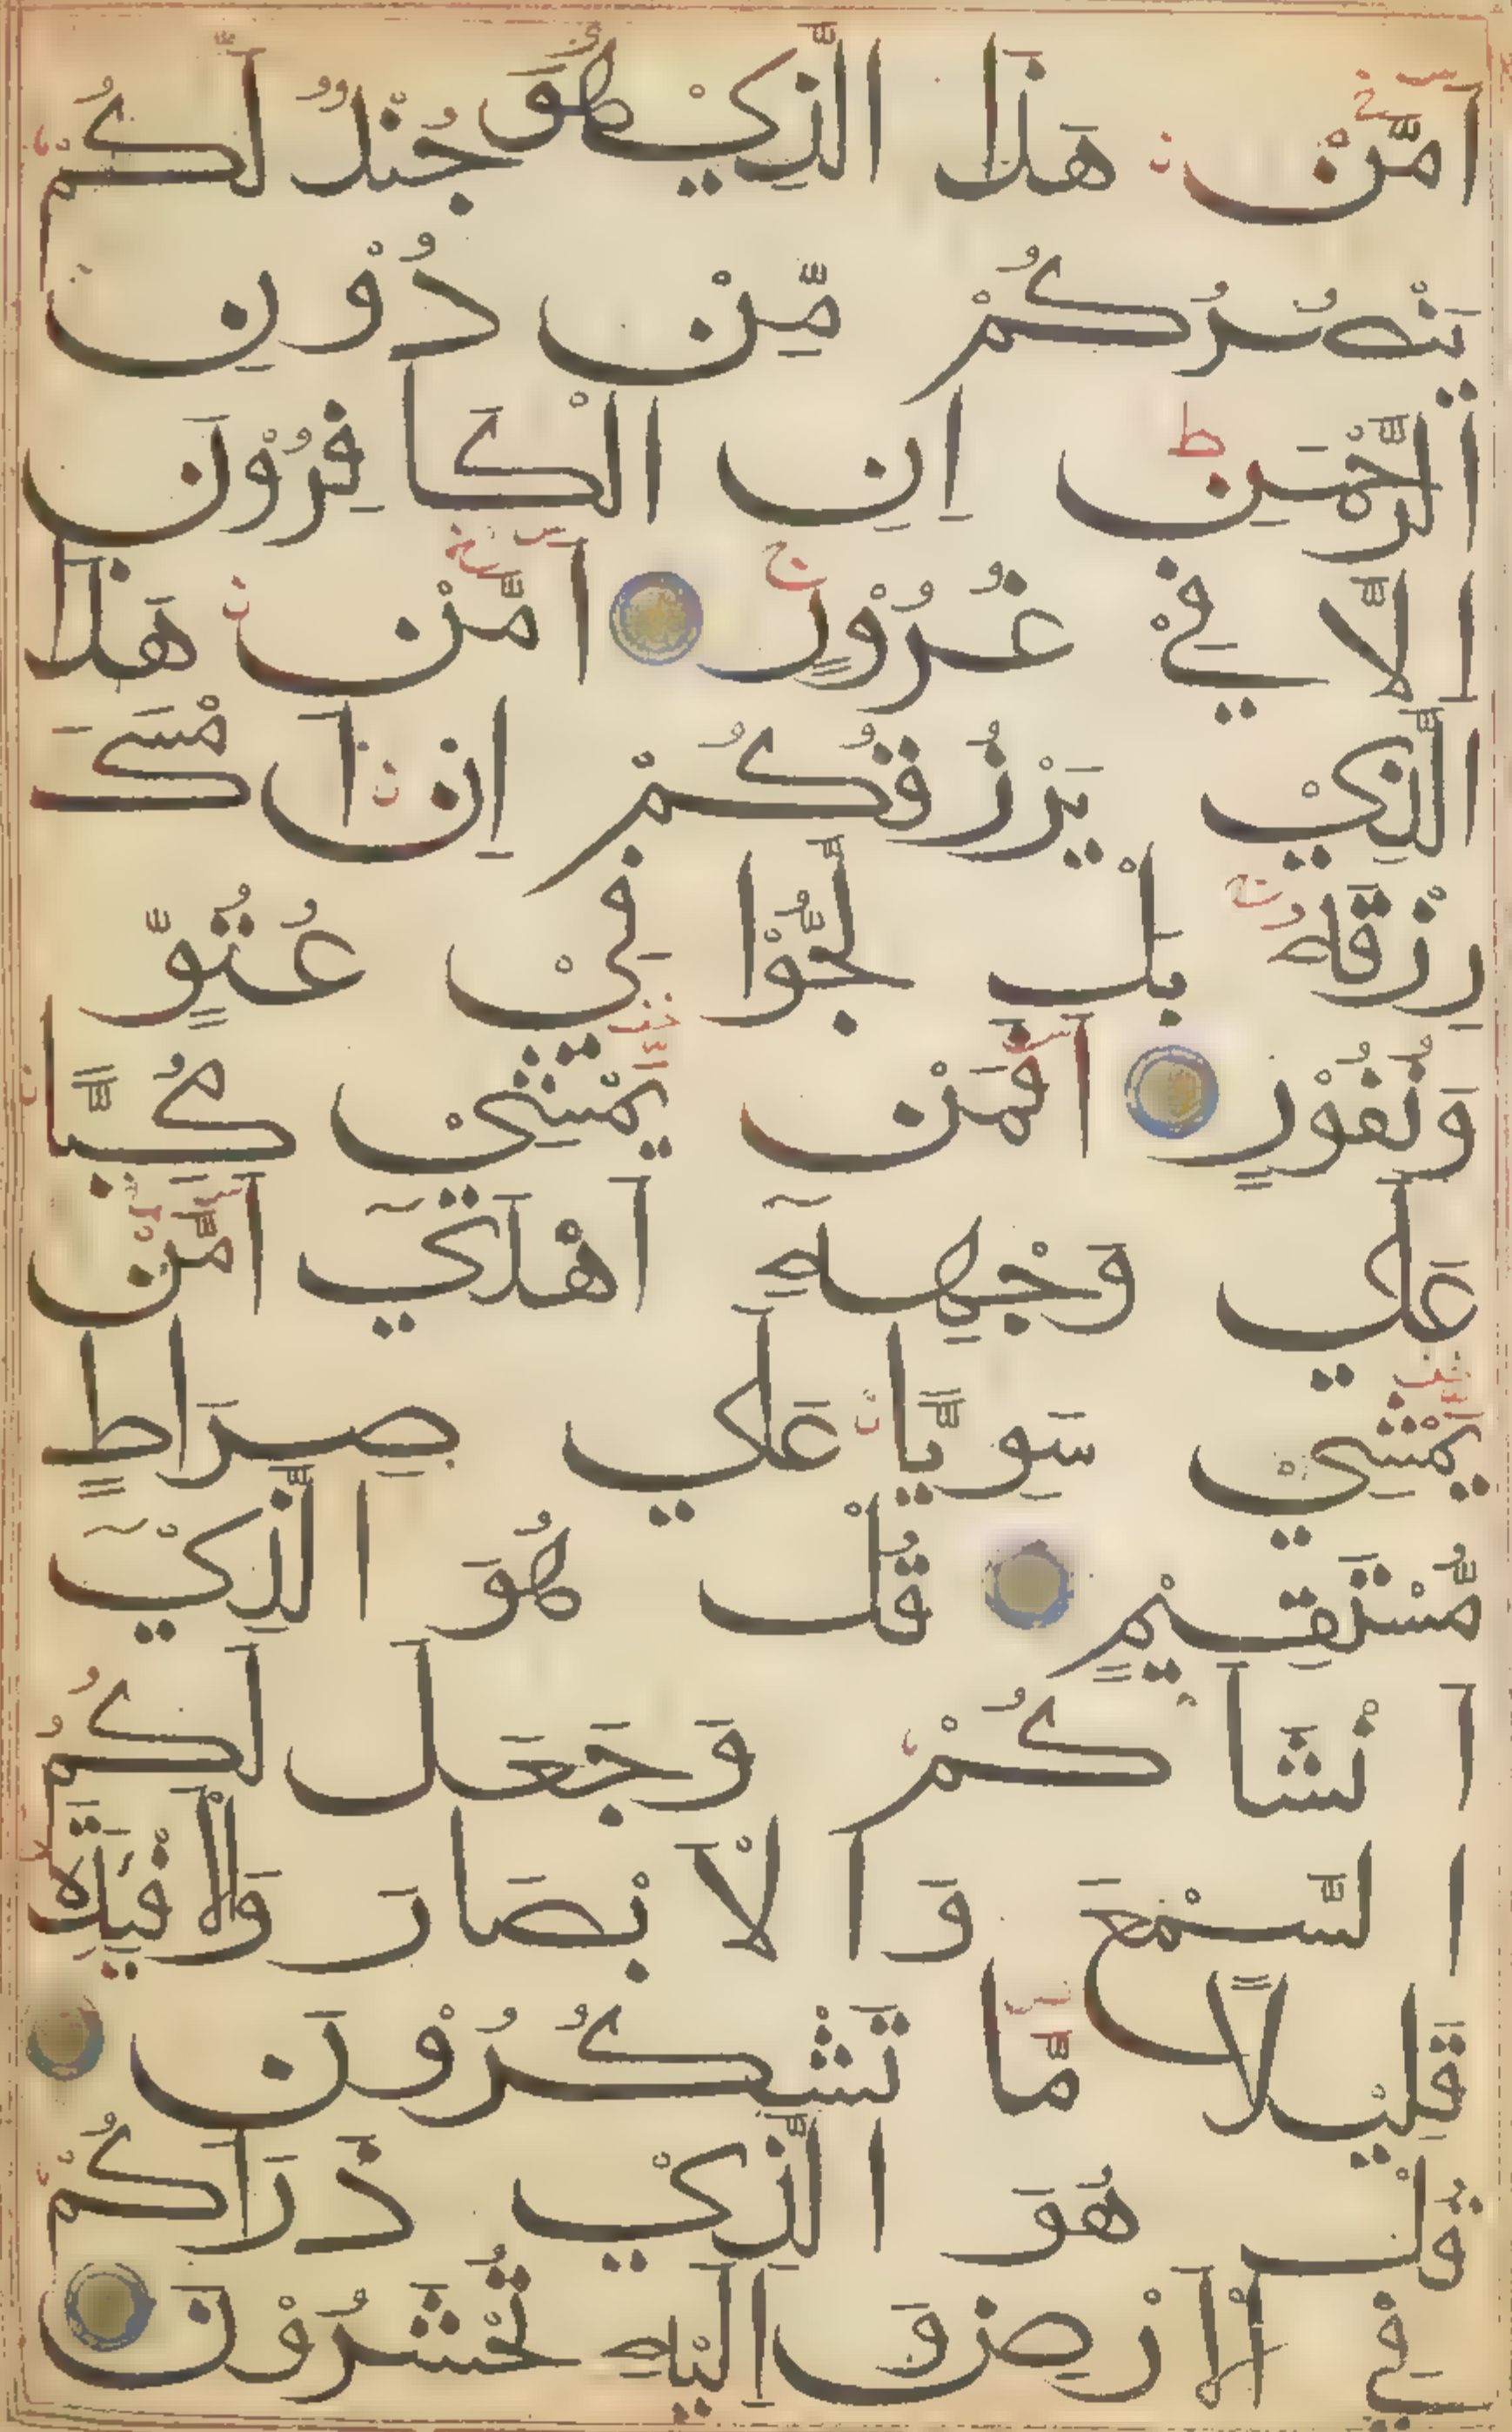 اَمَّنْ هَذَا الَّذِيْ هُوَ جُنْدٌ لَّكُمْ
يَنْصُرُكُمْ مِّنْ دُوْنِ
الرَّحْمَنِ ط اِنِ الْكَافِرُوْنَ
اِلَّا فِيْ غُرُوْرٍ ج اَمَّنْ هَذَا
الَّذِيْ يَرْزُقُكُمْ اِنْ اَمْسَكَ
رِزْقَهُ بَلْ لَّجُّوْا فِيْ عُتُوٍّ
وَنُفُوْرٍ اَفَمَنْ يَمْشِيْ مُكِبًّا
عَلَي وَجْهِهِ اَهْدَي اَمَّنْ
يَمْشِيْ سَوِيًّا عَلَي صِرَاطٍ
مُّسْتَقِيْمٍ قُلْ هُوَ الَّذِيْ
اَنْشَاَكُمْ وَجَعَلَ لَكُمُ
السَّمْعَ وَالْاَبْصَارَ وَالْاَفْئِدَةَ
قَلِيْلًا مَّا تَشْكُرُوْنَ
قُلْ هُوَ الَّذِيْ ذَرَاَكُمْ
فِي الْاَرْضِ وَاِلَيْهِ تُحْشَرُوْنَ